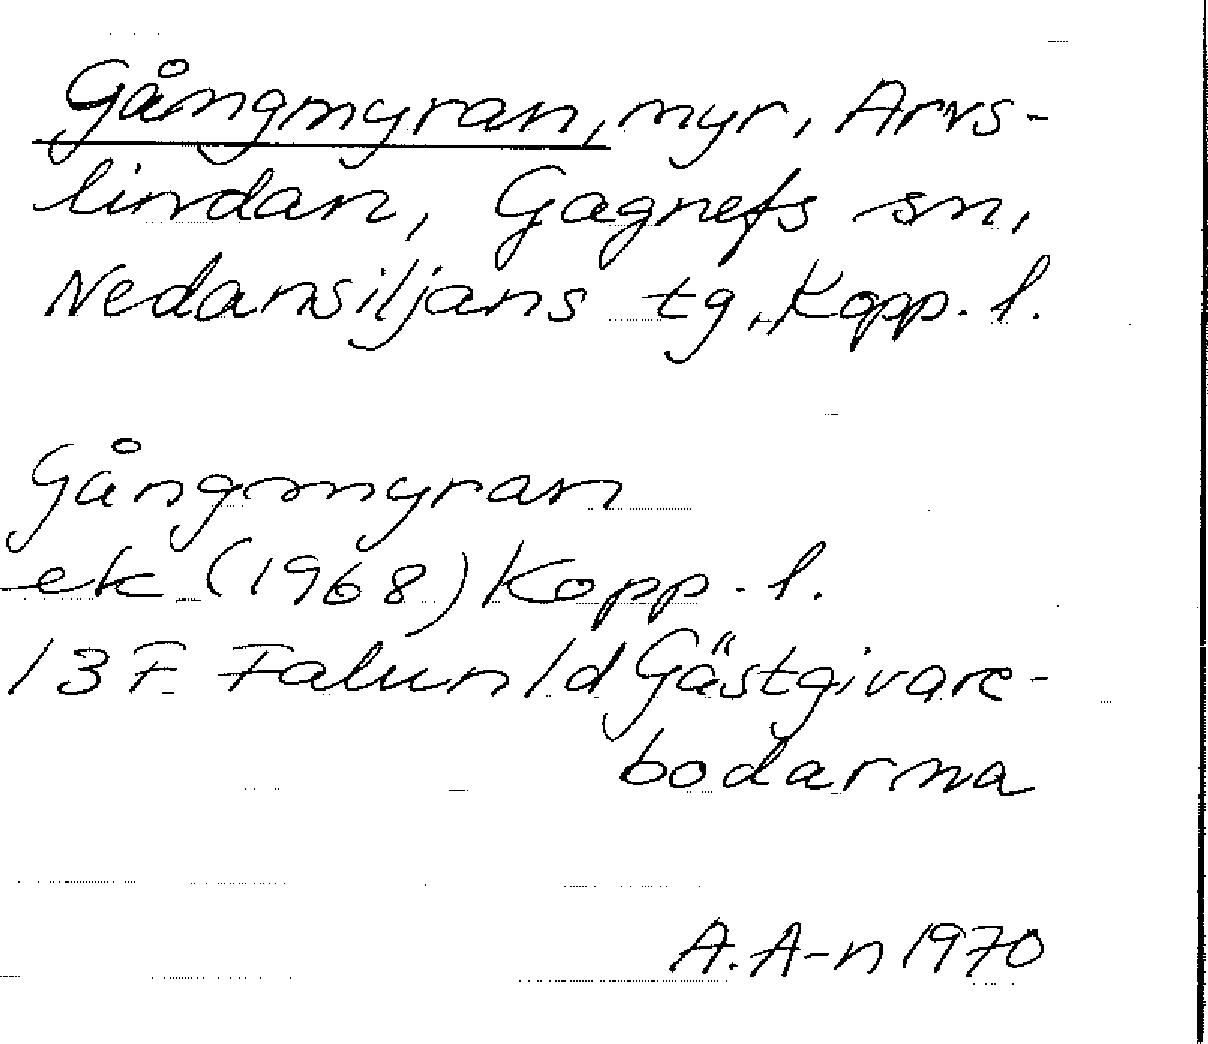 Gångmyran, myr, Arvs-
lindan, Gagnefs sn,
Nedansiljans tg, Kopp. l.
Gångmyran
ek (1968) Kopp. l.
13F Falun 1d Gästgivare-
bodarna
A. A-n 1970